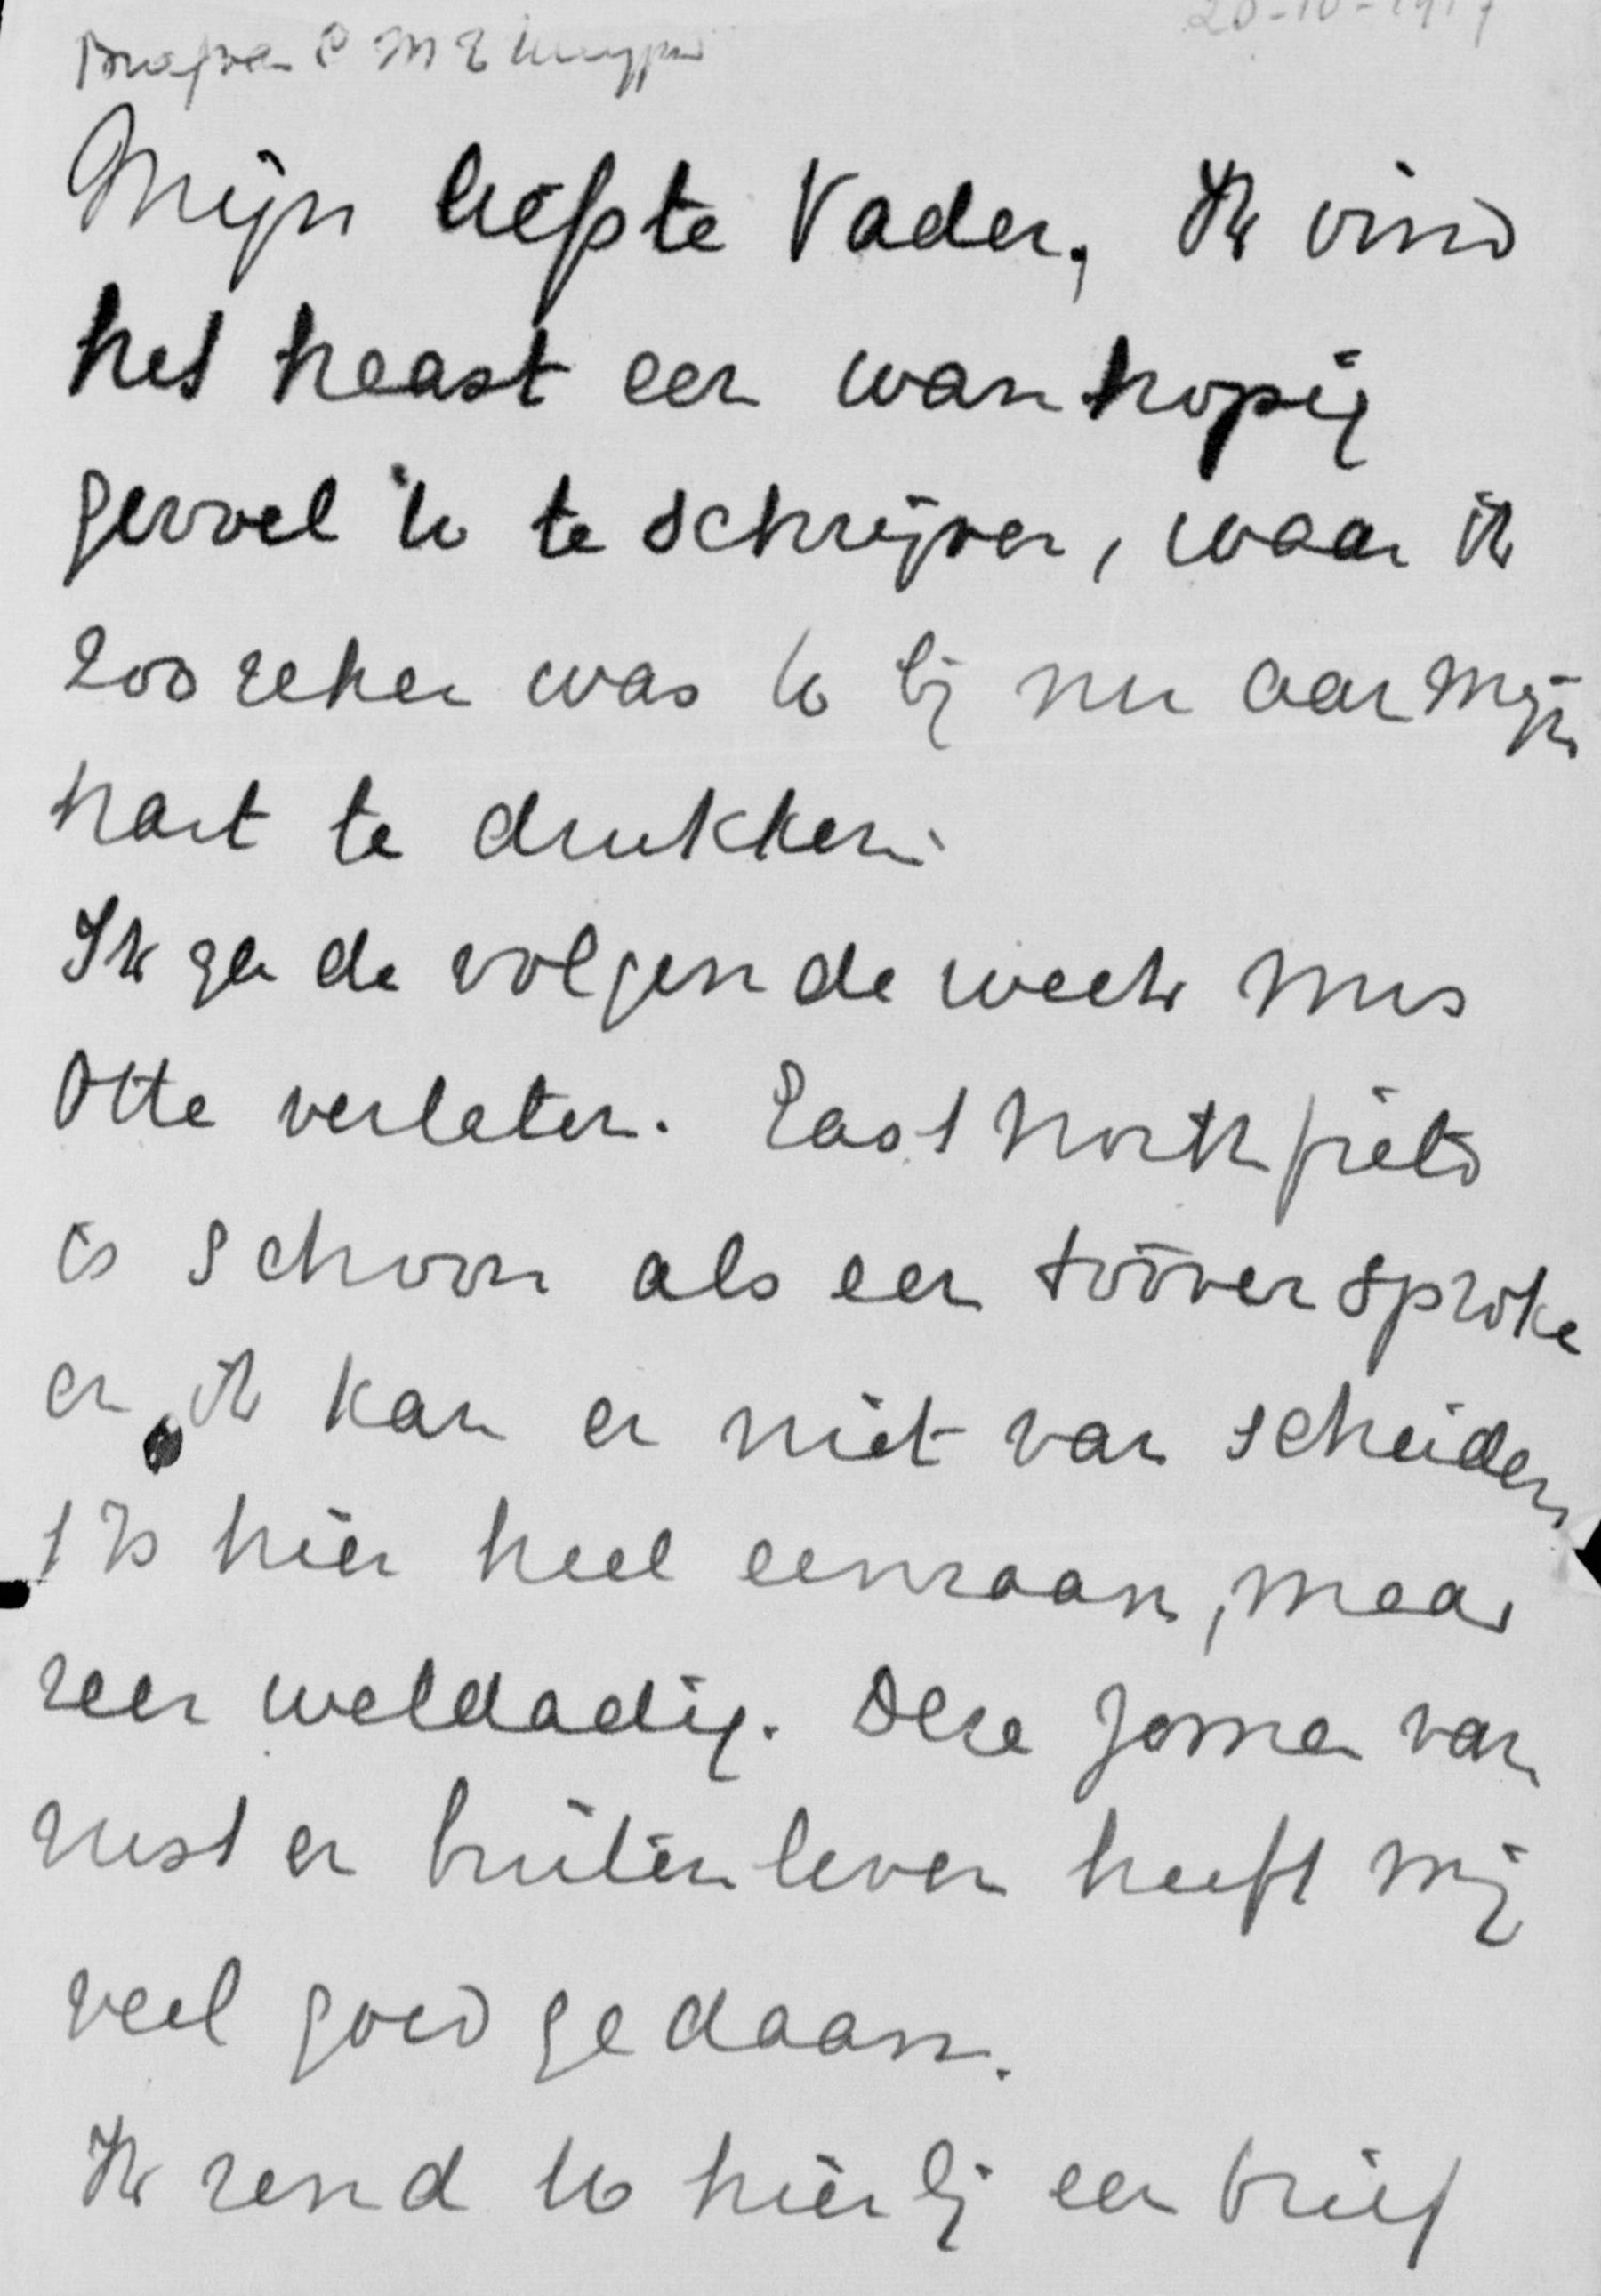 Brief van C M E Kuyper
20-10-19
Mijn liefste Vader, Ik vind
het haast een wanhopig
gevoel U te schrijven, waar ik
zoo zeker was U bij nu aan mijn
hart te drukken.
Ik ga de volgende week Mrs
Otte verlaten. East Northfield
is schoon als een tooversproke
en ik kan er niet van scheiden
't Is hier heel eenzaam, maar
zeer weldadig. Deze zomer van
rust en buitenleven heeft mij
veel goed gedaan.
Ik zend U hierbij een brief